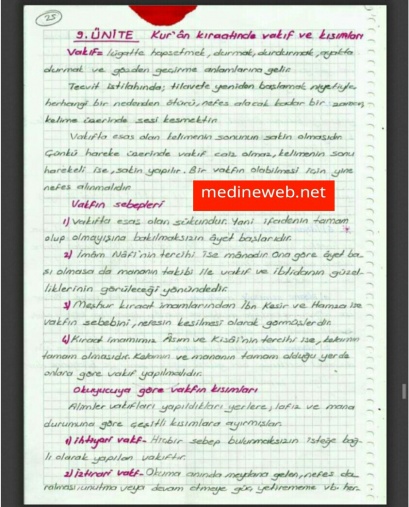 25
9. ÜNİTE Kur'ân kıraatinde vakıf ve kısımları
Vakıf= Lügatte hapsetmek, durmak, durdurmak, ayakta
durmak ve gözden geçirme anlamlarına gelir.
Tecvit ıstılahında; tilavete yeniden başlamak niyetiyle,
herhangi bir nedenden ötürü, nefes alacak kadar bir zaman,
kelime üzerinde sesi kesmektir.
Vakıfta esas olan kelimenin sonunun sakin olmasıdır.
Çünkü hareke üzerinde vakıf caiz olmaz, kelimenin sonu
harekeli ise, sakin yapılır. Bir vakfın olabilmesi için yine
nefes alınmalıdır.
medineweb.net
Vakfın sebepleri
1) Vakıfta esas olan sükundur. Yani ifadenin tamam
olup olmayışına bakılmaksızın âyet başlarıdır.
2) İmâm Nâfi'nin tercihi ise mânadır. Ona göre âyet ba-
şı olmasa da mananın takibi ile vakıf ve ibtidanın güzel-
liklerinin görüleceği yönündedir.
3) Meşhur kıraat imamlarından İbn Kesir ve Hamza ise
vakfın sebebini, nefesin kesilmesi olarak görmüşlerdir.
4) Kıraat imamımız Asım ve Kisâi'nin tercihi ise, kelamın
tamam olmasıdır. Kelamın ve mananın tamam olduğu yerde
onlara göre vakıf yapılmalıdır.
Okuyucuya göre vakfın kısımları
Alimler vakıfları yapıldıkları yerlere, lafız ve mana
durumuna göre çeşitli kısımlara ayırmışlar.
1) İhtiyari vakf- Hiçbir sebep bulunmaksızın isteğe bağ-
lı olarak yapılan vakıftır.
2) Iztırari vakf- Okuma anında meydana gelen, nefes da-
ralması, unutma veya devam etmeye güç yetirememe vb. her-